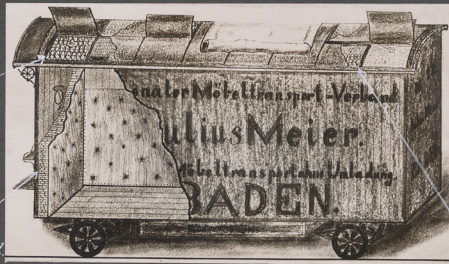 onaler Möbeltransport-Verband
ulius Meier.
Möbeltransport ohne Umladung
BADEN.